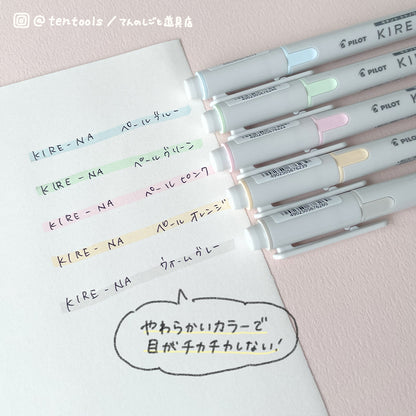 @tentools / てんのしごと道具店
PILOT KIRE
PILOT KI
PILOT K
PILOT
PILOT
KIRE-NA ペールブルー
KIRE-NA ペールグリーン
KIRE-NA ペールピンク
KIRE-NA ペールオレンジ
KIRE-NA ウォームグレー
やわらかいカラーで
目がチカチカしない!